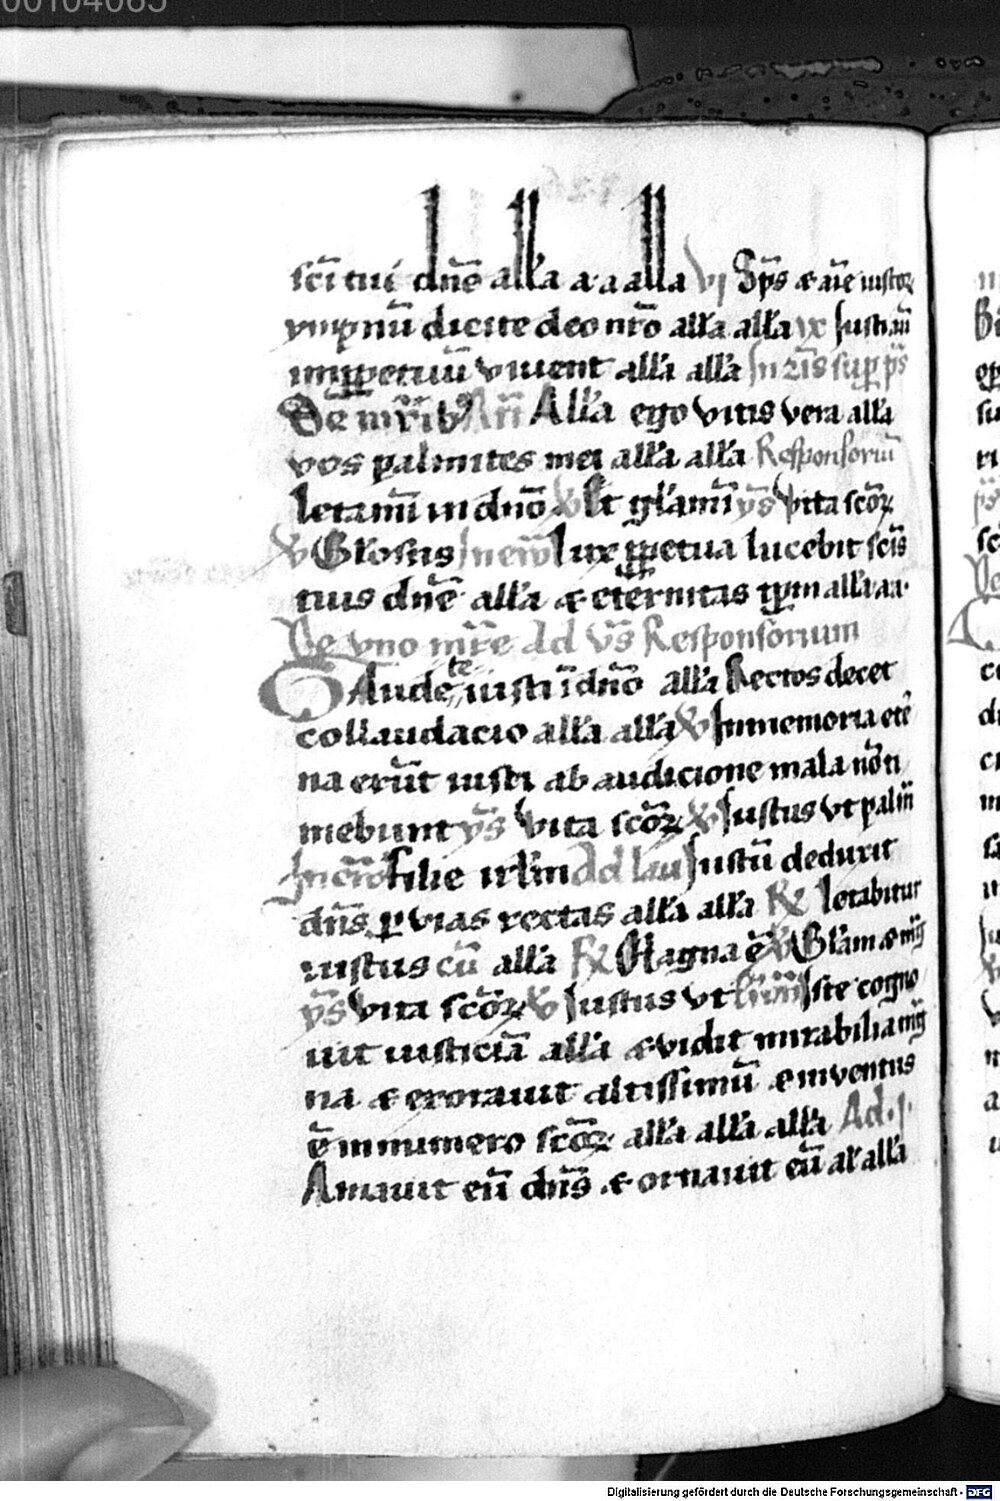 00104065
sc̄i tui dn̄e alĺa a·a alĺa vi Sp̄s ⁊ aīe iustoꝝ
ympnū dicite deo nr̄o alĺa alĺa ix Justi aū
imꝑpetuū vivent alĺa alĺa
De mr̄ib⁹ Añ Alĺa ego vitis vera alĺa
vos palmites mei alĺa alĺa Responsoriū
letamī in dn̄o ℣ Et gl̄amī ẏs Vita sc̄oꝝ
℣ G̅losus In ew̄ Lux ꝑpetua lucebit sc̄is
tuis dn̄e alĺa ⁊ et̄ernitas tp̄m alĺa aa·
De vno mr̄e Ad Vs̄ Responsorium
GAudete iusti ī dn̄o alĺa Rectos decet
collaudacio alĺa alĺa ℣ In memoria et̄e
na erūt iusti ab audicione mala nō ti
mebunt ẏs Vita sc̄oꝝ ℣ Justus vt palm̄
In ew̄ Filie irl̄m Ad lau Justū deduxit
dn̄s ꝑ vias rectas alĺa alĺa ℟ Letabitur
iustus cū alĺa ℟ Magna ē ℣ Gl̄am ⁊ mg̅
ẏs Vita sc̄oꝝ ℣ Justus vt Iste cogno
uit iusticiā alĺa ⁊ vidit mirabilia mg̅
na ⁊ exorauit altissimū ⁊ inventus
ē in numero sc̄oꝝ alĺa alĺa alĺa Ad·j·
Amauit eū dn̄s ⁊ ornauit eū al̄ alĺa
Digitalisierung gefördert durch die Deutsche Forschungsgemeinschaft - DFG